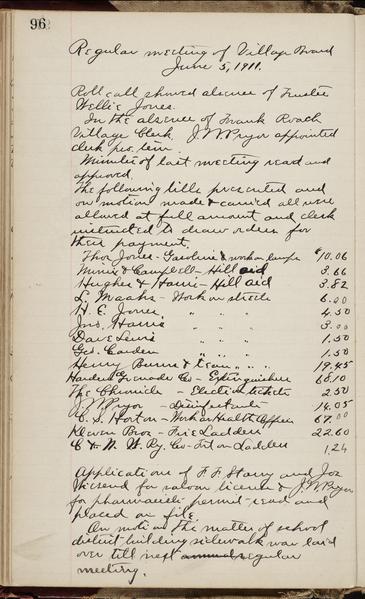 96
Regular meeting of Village Board
June 5, 1911.
Roll call showed absence of Trustee
Wellie Jones.
In the absence of Frank Roach
Village Clerk J. W. Pryor appointed
clerk pro. tem.
Minutes of last meeting read and
approved.
The following bills presented and
on motion made & carried all were
allowed at full amount and clerk
instructed to draw orders for
their payment.
Thos Jones - Gasoline & work on lamps $10.06
& Campbell - Hill aid 3.66
Hughes & Harris - Hill aid 3.82
L. Maahs - Work on streets 6.00
H. E. Jones " " " 4.50
Jno. Harris " " " 3.00
Dave Lewis " " " 1.50
Geo. Carden " " " 1.50
Henry Burns & team " " " 19.45
Harden Grenade Co - Extinguishers 60.10
The Chronicle - Election tickets 2.50
J. W. Pryor - Disinfectants 14.05
C. S. Horton - Work as Health Officer 67.00
Bros - Fire Ladders 22.60
C & N. W. Ry. Co - Frt on Ladders 1.24
Applications of F. F. Stary and Jos
for saloon license & J. W. Pryor
for pharmacist permit read and
placed on file.
On motion the matter of school
district building sidewalk was laid
over till next regular
meeting.